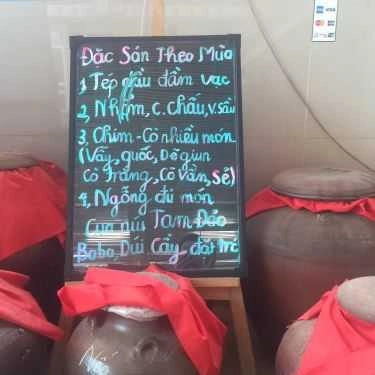 Đặc Sản Theo Mùa
1, Tép dầu đầm vạc
2, Nhộng, C. Chấu, V. Sầu
3, Chim - Có nhiều món
(Vẩy, quốc, Dẽ giun
Cò trắng, Cò vằn, Sẻ)
4, Ngỗng đủ món
Cua núi Tam Đảo
Bobo, Dúi Cầy đặt trc